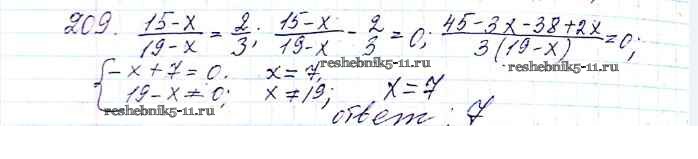 209. (15-x)/(19-x) = 2/3; (15-x)/(19-x) - 2/3 = 0; (45-3x-38+2x)/(3(19-x)) = 0;
{ -x+7=0. x=7, reshebnik5-11.ru
19-x≠0; x≠19; x=7 reshebnik5-11.ru
reshebnik5-11.ru ответ: 7